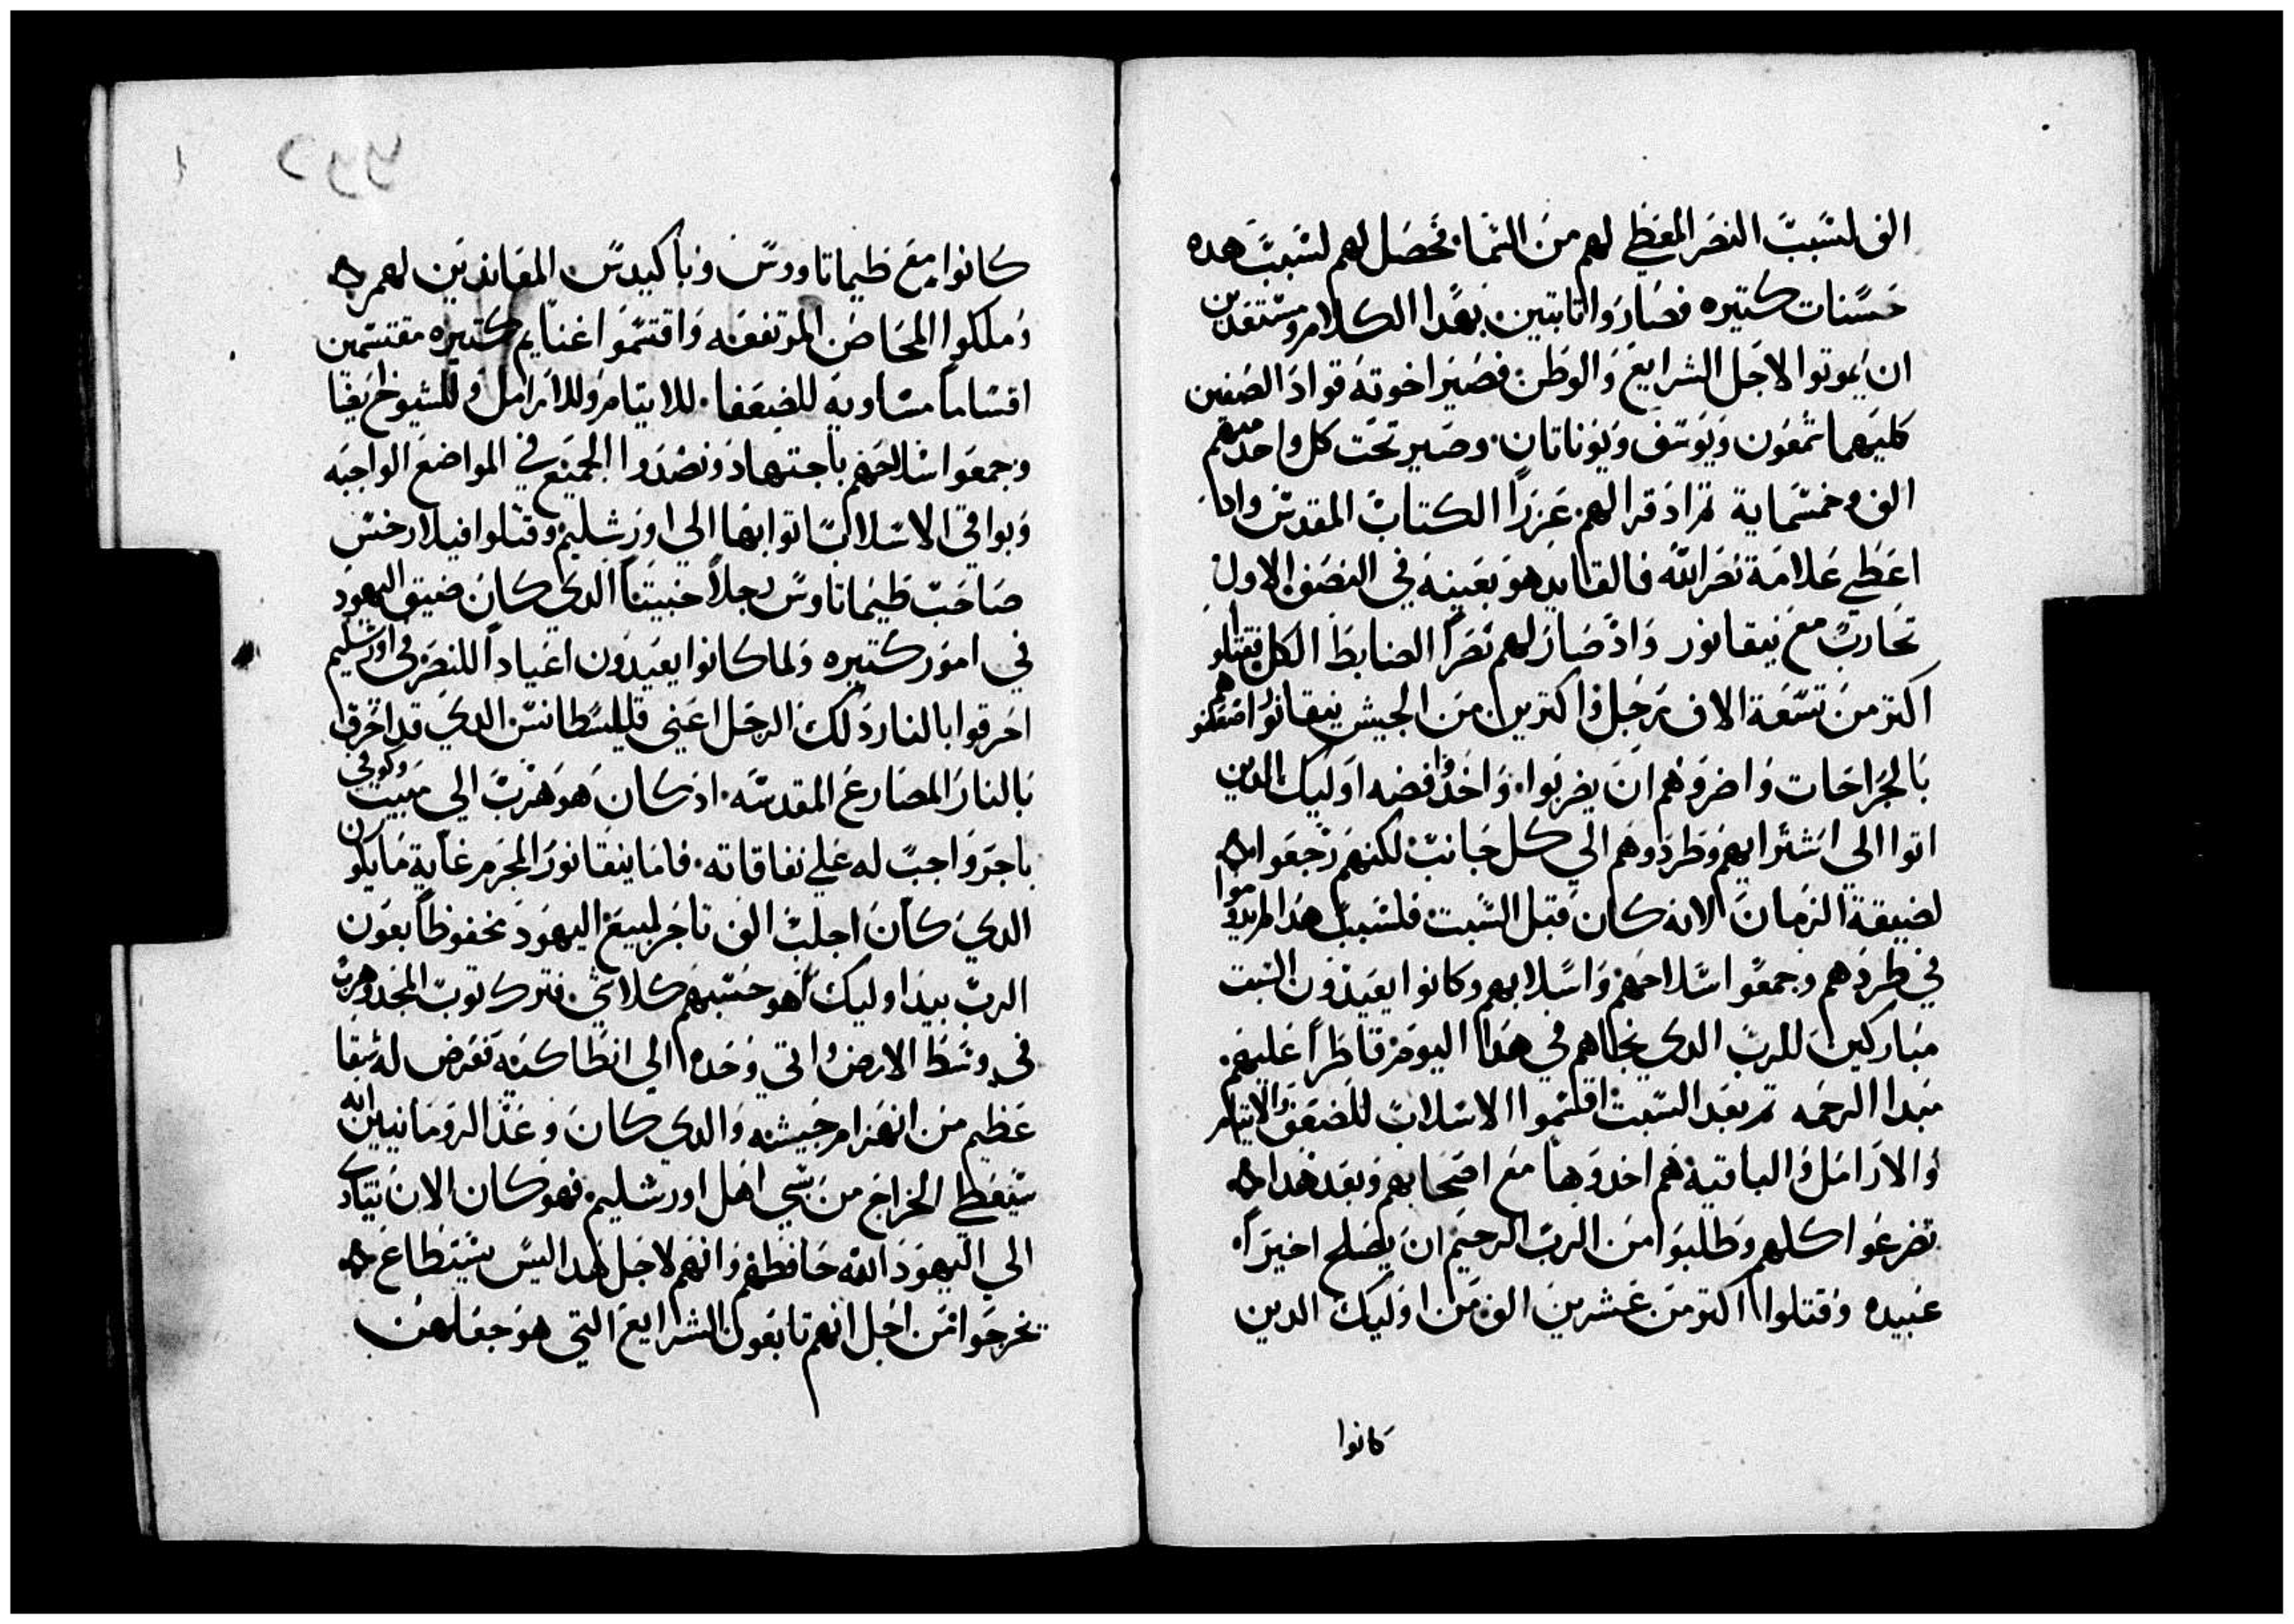 الف لسبب النصر المعطي لهم من السما. فحصل لهم لسبب هده
حسنات كتيره فصاروا تابتين بهدا الكلام ومستعدين
ان يموتوا لاجل الشرايع والوطن فصير اخوته قواد الصفين
كليهما شمعون ويوسف ويوناتان. وصير تحت كل واحد منهم
الف وخمسماية تم اد قرا لهم عزرا الكتاب المقدس واد
اعطي علامة نصر الله فالقايد هو بعينه في النصف الاول
تحارب مع نيقانور واد صار لهم نصرا الضابط الكل فقتلوا
اكتر من تسعة الاف رجل واكترين من الجيش نيقانور اضعفوهم
بالجراحات واضروهم ان يضربوا. واخدوا فضه اوليك الدين
اتوا الي اشترايهم وطردوهم الي كل جانب لكنهم رجعوا
لضيقة الزمان لانه كان قبل السبت فلسبب هدا لم يدوموا
في طردهم وجمعوا سلاحهم واسلابهم وكانوا يعيدون السبت
مباركين للرب الدي نجاهم في هدا اليوم قاطرا عليهم
مبدا الرحمه تم بعد السبت اقسموا الاسلاب للضعفا والايتام
والارامل والباقية هم اخدوها مع اصحابهم وبعد هدا
تضرعوا كلهم وطلبوا من الرب الرحيم ان يصلح اخيرا
عبيده وقتلوا اكتر من عشرين الف من اوليك الدين
كانوا
كانوا مع طيماتاوس وباكيدس المعاندين لهم
وملكوا المحاصن المرتفعه واقتسموا غنايم كتيره مقتسمين
اقساما مساويه للضعفا. للايتام وللارامل وللشيوخ ايضا
وجمعوا سلاحهم باجتهاد ونصدوا الجميع في المواضع الواجبه
وبواقي الاسلاب اتوا بها الي اورشليم وقتلوا فيلارخس
صاحب طيماتاوس رجلا خبيتا الدي كان ضيق اليهود
في امور كتيره ولما كانوا يعيدون اعيادا للنصر في اورشليم
احرقوا بالنار دلك الرجل اعني قليسطانس الدي قد احرق
بالنار المصارع المقدسه. اد كان هو هرب الي مبيت وكوفي
باجر واجب له علي نفاقاته. فاما ينقانور المجرم غاية ما يكون
الدي كان اجلب الف تاجر لمبيع اليهود محفوظا بعون
الرب بيد اوليك هو حسبهم كلاشي. فترك توب المجد وهرب
في وسط الارض واتي وحده الي انطاكيه تعرض له شقا
عظيم من انهزام جيشه والدي كان وعد الرومانيين انه
سيعطي الخراج من سبي اهل اورشليم. فهو كان الان ينادي
الي اليهود الله حافظهم وانهم لاجل هدا ليس يستطاع
يخرجوا من اجل انهم تابعون الشرايع التي هو جعلهن